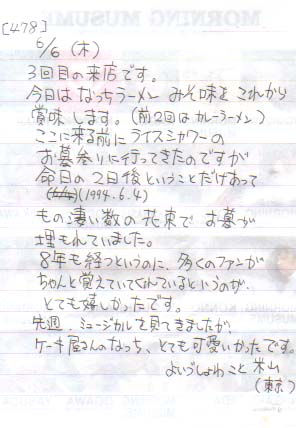 [478]
6/6 (木)
3回目の来店です。
今日は なっちラーメン みそ味を これから
賞味します。(前2回は カレーラーメン)
ここに来る前に ライスシャワーの
お墓参りに行ってきたのですが
命日の2日後ということだけあって
(1994.6.4)
もの凄い数の花束で お墓が
埋もれていました。
8年も経つというのに、多くのファンが
ちゃんと覚えていてくれているというのが、
とても嬉しかったです。
先週、ミュージカルを見てきましたが、
ケーキ屋さんのなっち、とても可愛いかったです。
よいづしよわこと 米山
(東京)
MORNING MUSUME